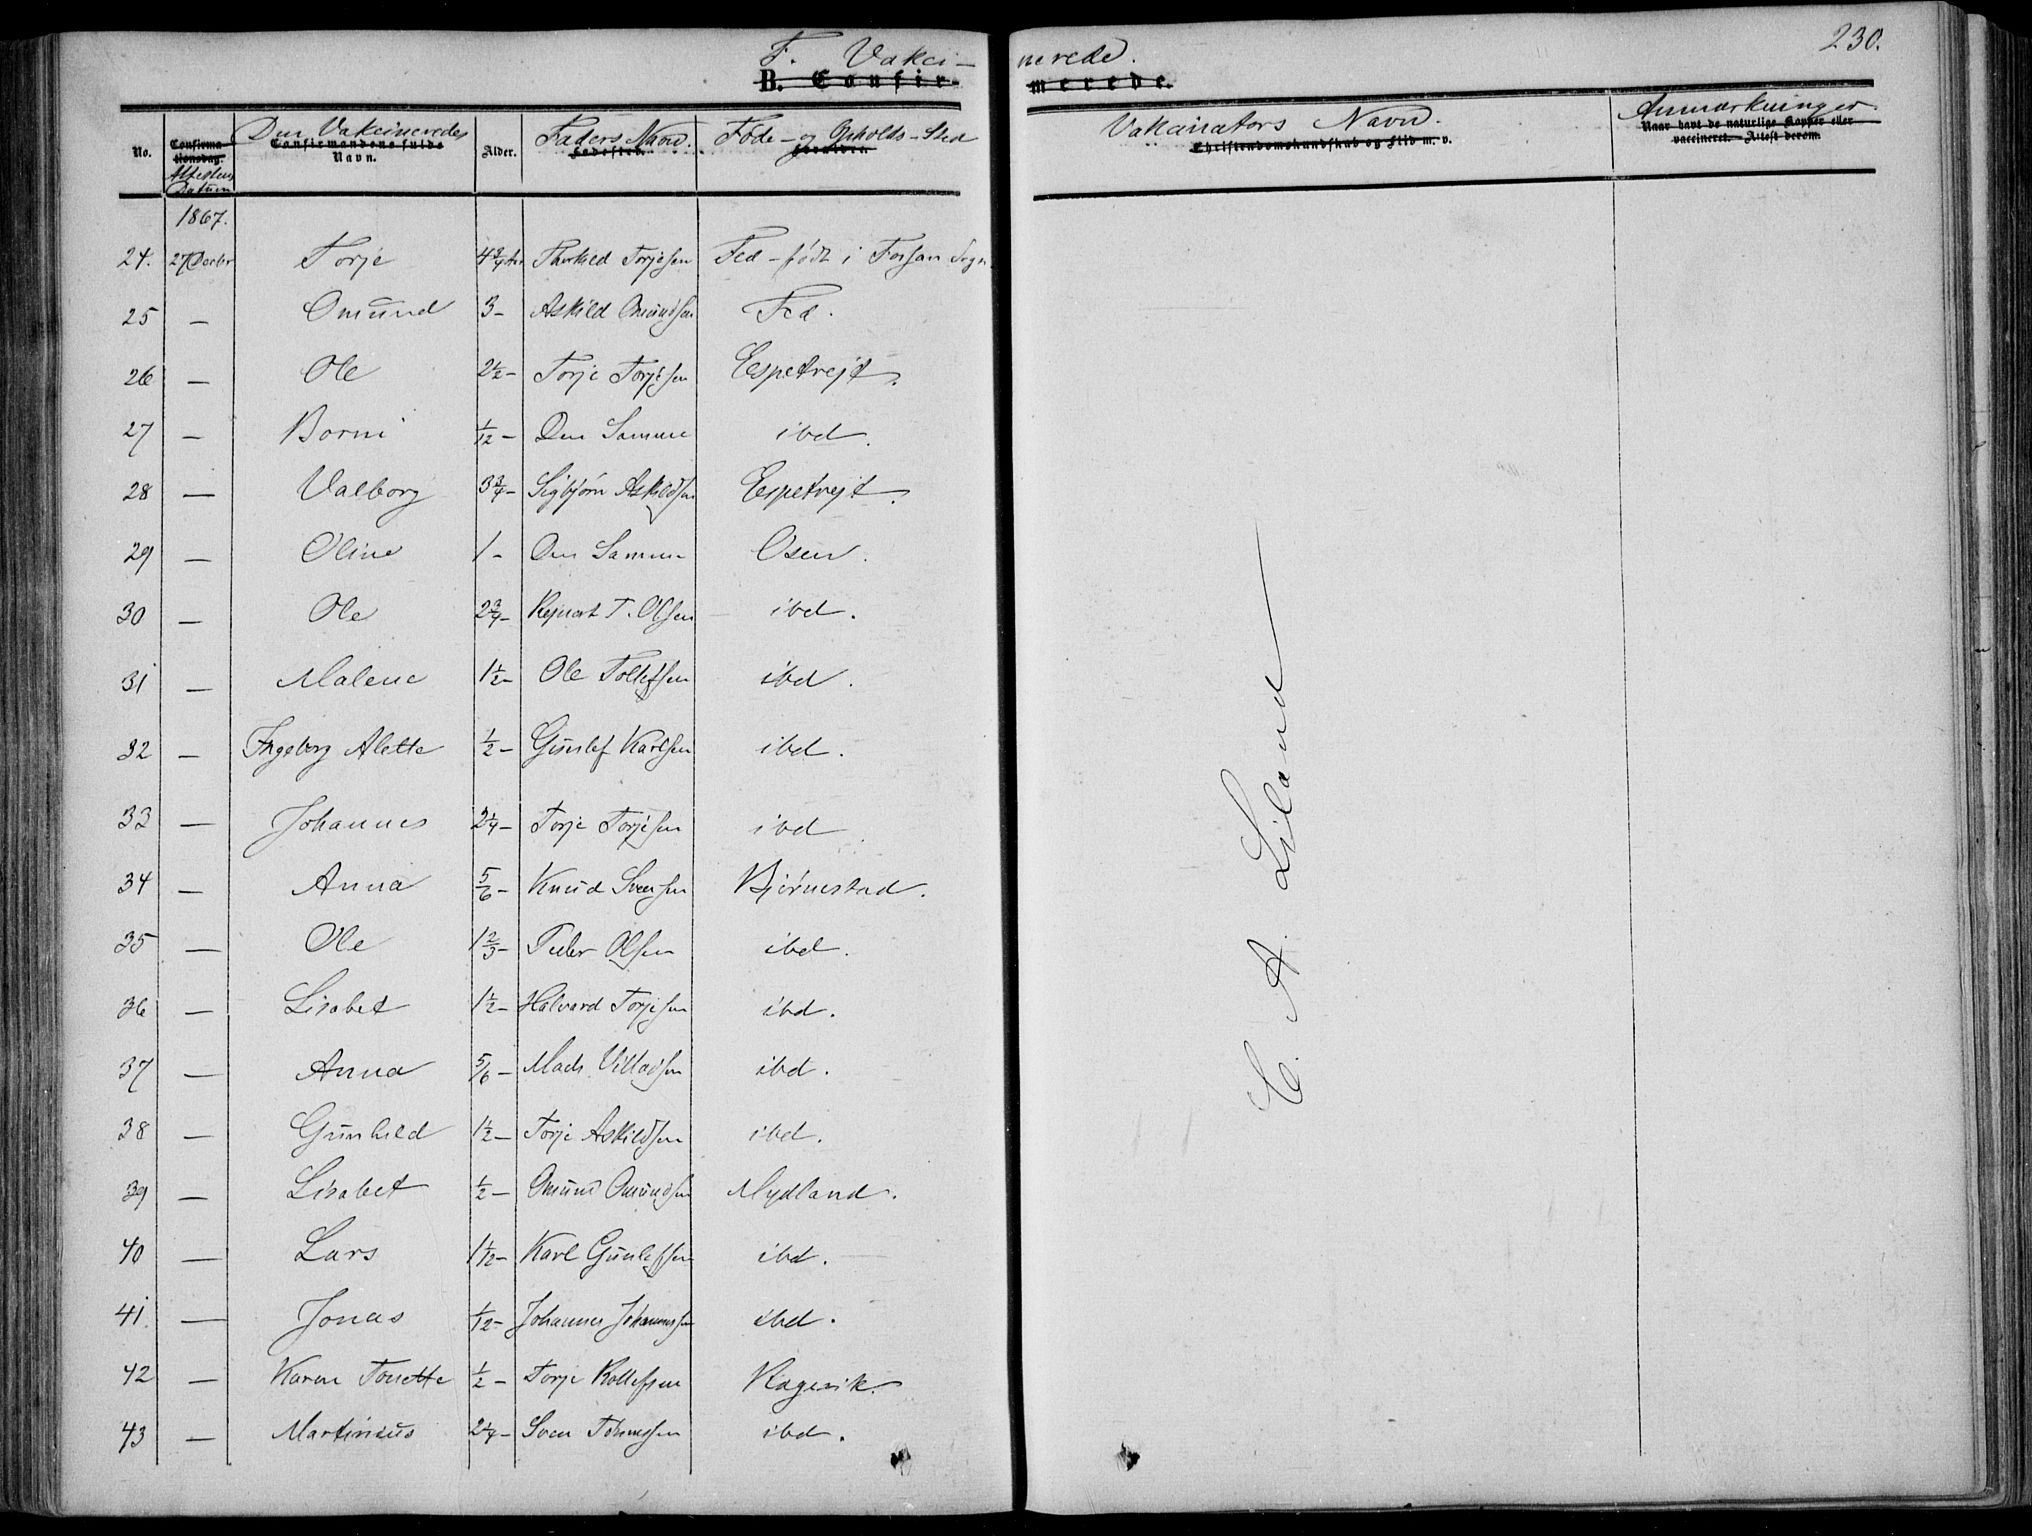 230.
F. Vakci- nerede.
B. Confir- merede.
No. Confirmationsdag. Attestens Datum Den Vakcineredes Confirmandens fulde Navn. Alder. Faders Navn. Fødested. Føde- og Opholds-Sted Forældre. Vakcinators Navn. Christendomskundskab og Flid m. v. Anmærkninger. Naar havt de naturlige Kopper eller vaccineret. Attest derom.
1867.
24. 27 Decbr Torje 4 3/4 Aar Thorkild Torjesen Fed - født i Forsan Sogn
25 — Omund 3 - Askild Omundsen Fed.
26 — Ole 2 1/2 - Torje Torjesen Espetvejt.
27 — Borni 1/12 - Den Samme ibd.
28 — Valborg 3 3/4 - Sigbjørn Askildsen Espetvejt.
29 — Oline 1 - Den Samme Osen.
30 — Ole 2 3/4 - Rejnert T. Olsen ibd.
31 — Malene 1 1/2 - Ole Tollefsen ibd.
32 — Ingeborg Alette 1/2 - Gunlef Karlsen ibd.
33 — Johannes 2 1/4 - Torje Torjesen ibd
34 — Anna 5/6 - Knud Svensen Bjørnestad.
35 — Ole 1 2/3 - Peder Olsen ibd.
36 — Lisabet 1 1/2 - Halvard Torjesen ibd.
37 — Anna 5/6 - Mads Villadsen ibd.
38 — Gunhild 1 1/2 - Torje Askildsen ibd.
39 — Lisabet 1/2 - Omund Omundsen Mydland.
40 — Lars 1 1/12 - Karl Gunlefsen ibd.
41. — Jonas 1/12 - Johannes Johannessen ibd.
42 — Karen Tonette 1/2 - Torje Rollefsen Ragevik.
43 — Martinius 2 1/4 - Sven Tønnessen ibd.
E. A. Liland